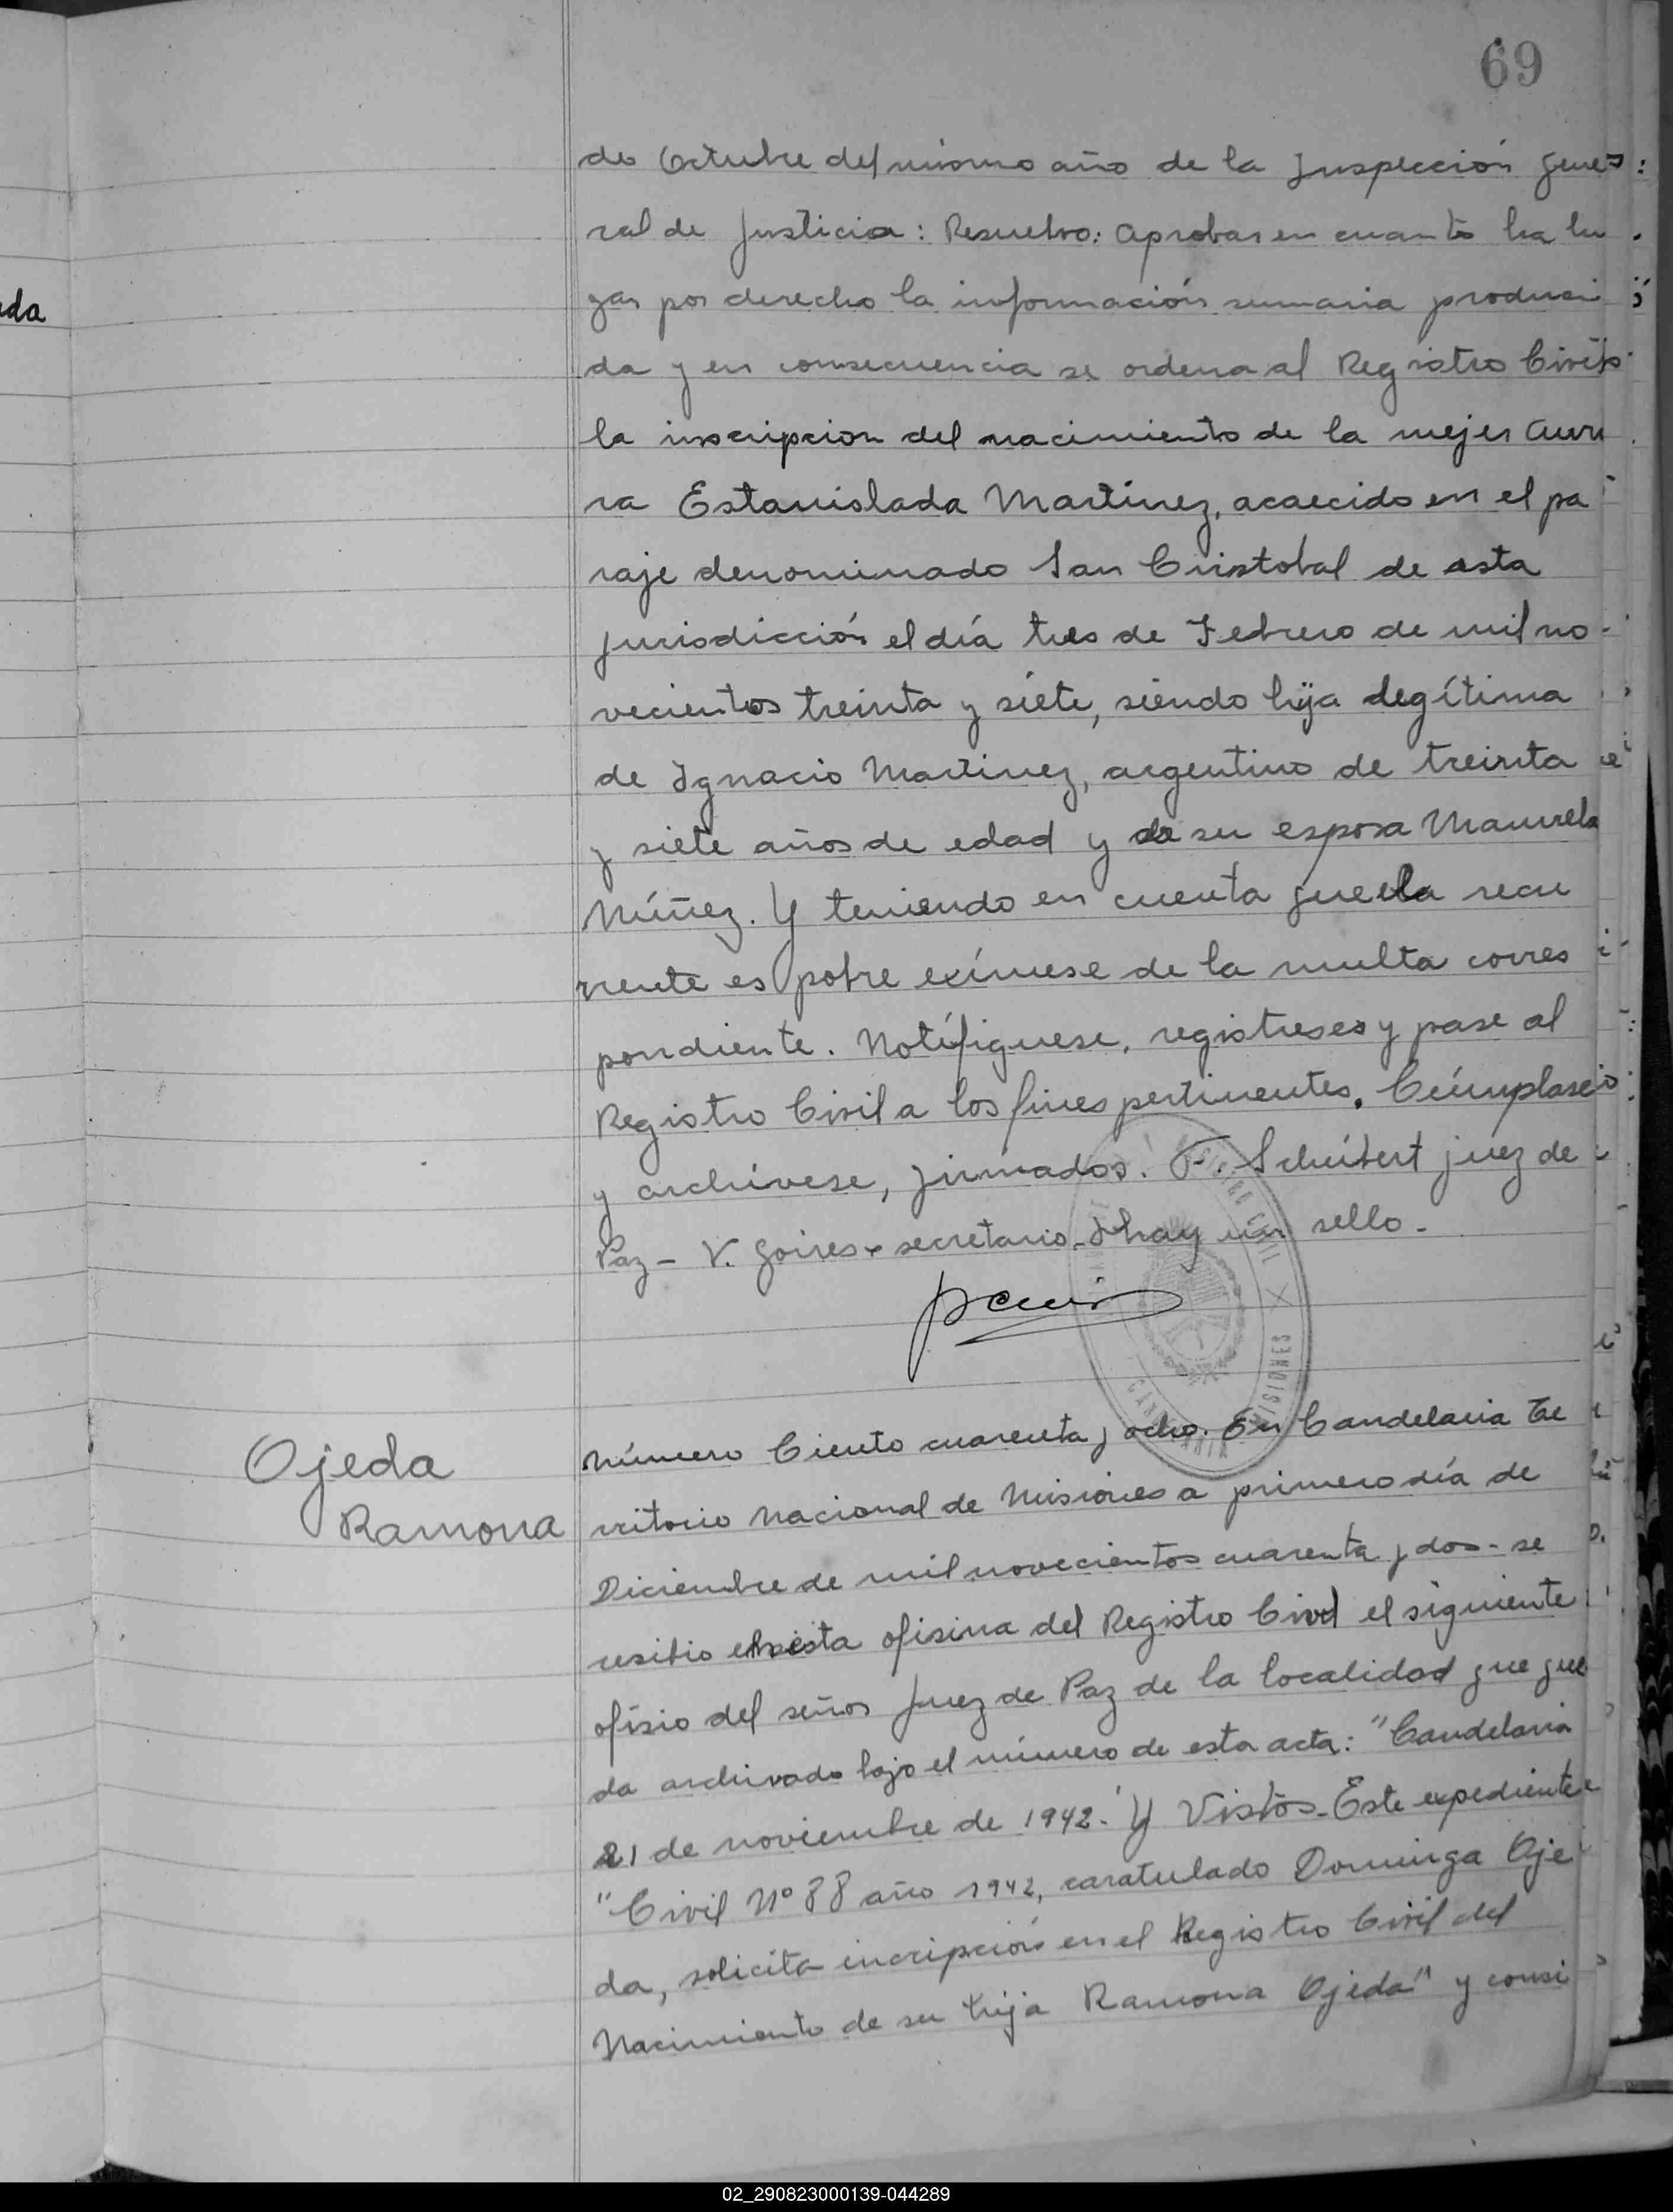 69
de Octubre del mismo año de la Inspección gene
ral de Justicia: Resuelvo: Aprobar en cuanto ha lu
gar por derecho la información sumaria produci
da y en consecuencia se ordena al Registro Civil
la inscripcion del nacimiento de la mujer Auro
ra Estanislada Martinez, acaecido en el pa
raje denominado San Cristobal de esta
jurisdicción el día tres de Febrero de mil no-
vecientos treinta y siete, siendo hija legítima
de Ignacio Martinez, argentino de treinta
y siete años de edad y de su esposa Manuela
Núñez. Y teniendo en cuenta que la recu
rrente es pobre exímese de la multa corres
pondiente. Notífiquese, registrese y pase al
Registro Civil a los fines pertinentes. Cúmplase
y archívese, firmados. F. Schúbert juez de
Paz - V. Goires - secretario - hay un sello -
REGISTRO CIVIL
MISIONES
CANDELARIA
Ojeda
Ramona
Número Ciento cuarenta y ocho. En Candelaria Te
rritorio Nacional de Misiones a primero día de
Diciembre de mil novecientos cuarenta y dos - se
resibio en esta ofisina del Registro Civil el siguiente
ofisio del señor Juez de Paz de la localidad que que
da archivado bajo el número de esta acta: "Candelaria
21 de noviembre de 1942. Y Vistos - Este expediente
"Civil Nº 88 año 1942, caratulado Dominga Oje
da, solicita incripción en el Registro Civil del
Nacimiento de su hija Ramona Ojeda" y consi
eda
02_290823000139-044289